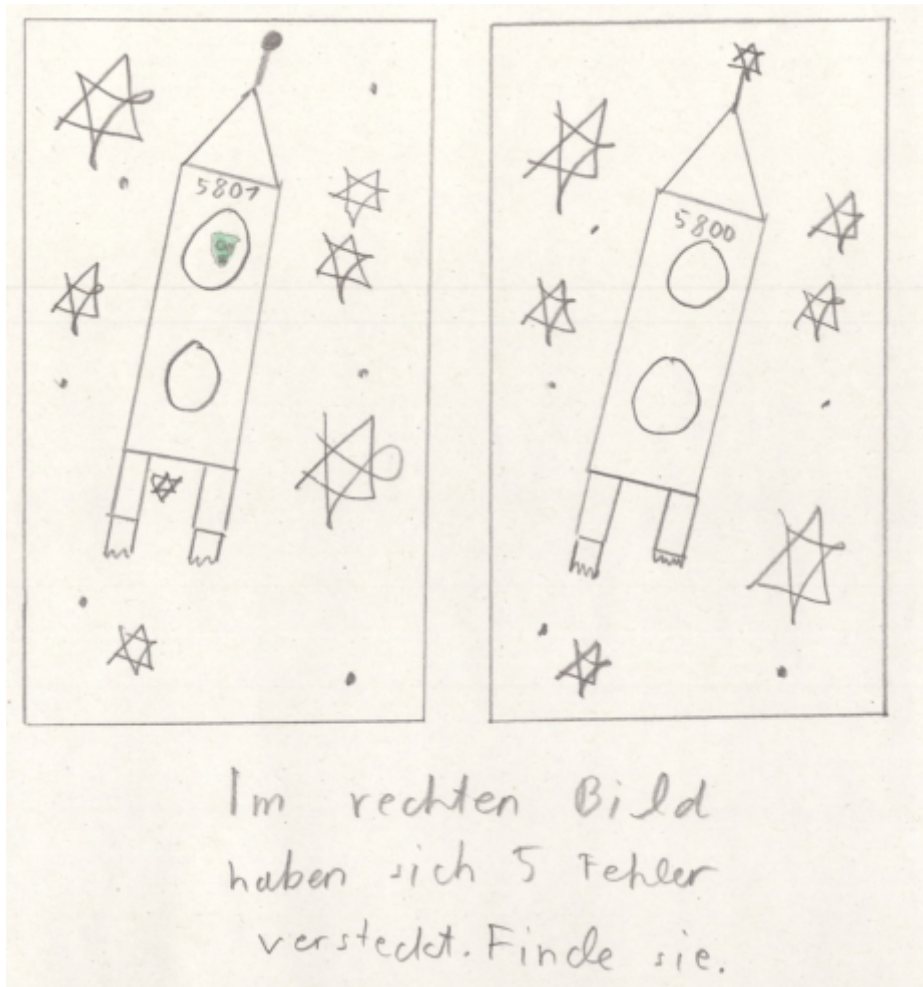 5801
5800
Im rechten Bild
haben sich 5 Fehler
versteckt. Finde sie.